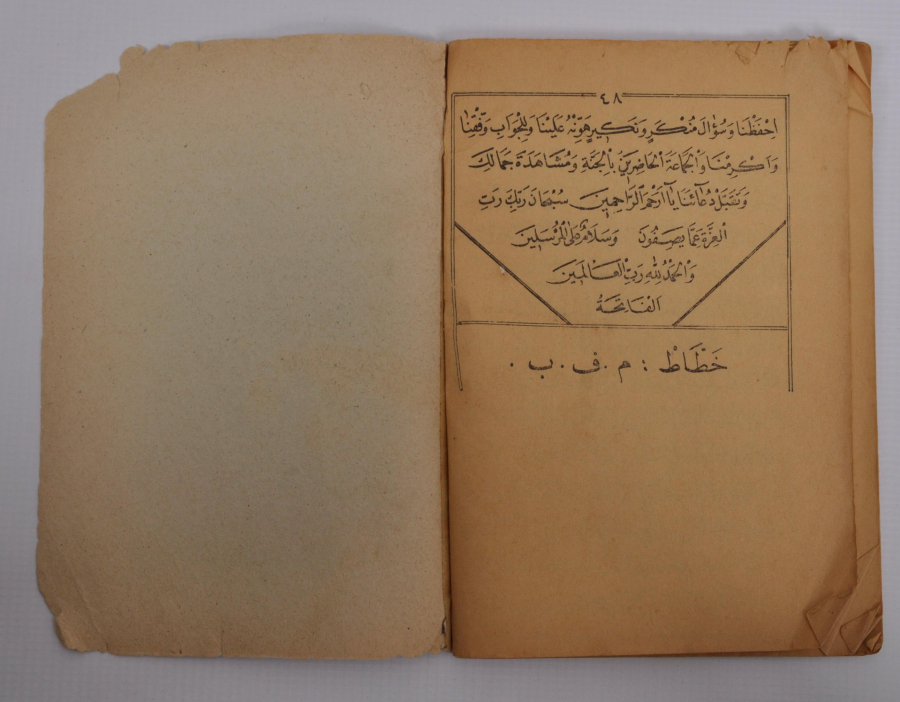 ٤٨
اِحْفَظْنَا وَسُؤَالَ مُنْكَرٍ وَنَكِيرٍ هَوِّنْهُ عَلَيْنَا وَلِلْجَوَابِ وَفِّقْنَا
وَاَكْرِمْنَا وَالْجَمَاعَةَ الْحَاضِرِينَ بِالْجَنَّةِ وَمُشَاهَدَةَ جَمَالِكَ
وَتَقَبَّلْ دُعَآئَنَا يَآ اَرْحَمَ الرَّاحِمِينَ سُبْحَانَ رَبِّكَ رَبِّ
الْعِزَّةِ عَمَّا يَصِفُونَ وَسَلَامٌ عَلَى الْمُرْسَلِينَ
وَالْحَمْدُ لِلّٰهِ رَبِّ الْعَالَمِينَ
اَلْفَاتِحَةُ
خَطَّاطْ : م . ف . ب .